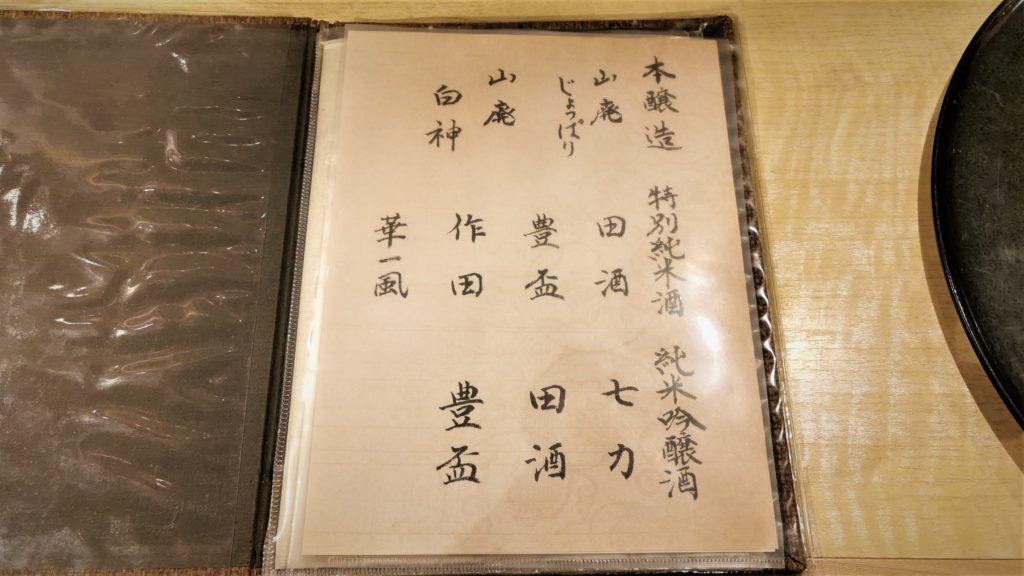 本醸造
山廃
じょっぱり
山廃
白神
特別純米酒
田酒
豊盃
作田
華一風
純米吟醸酒
七力
田酒
豊盃